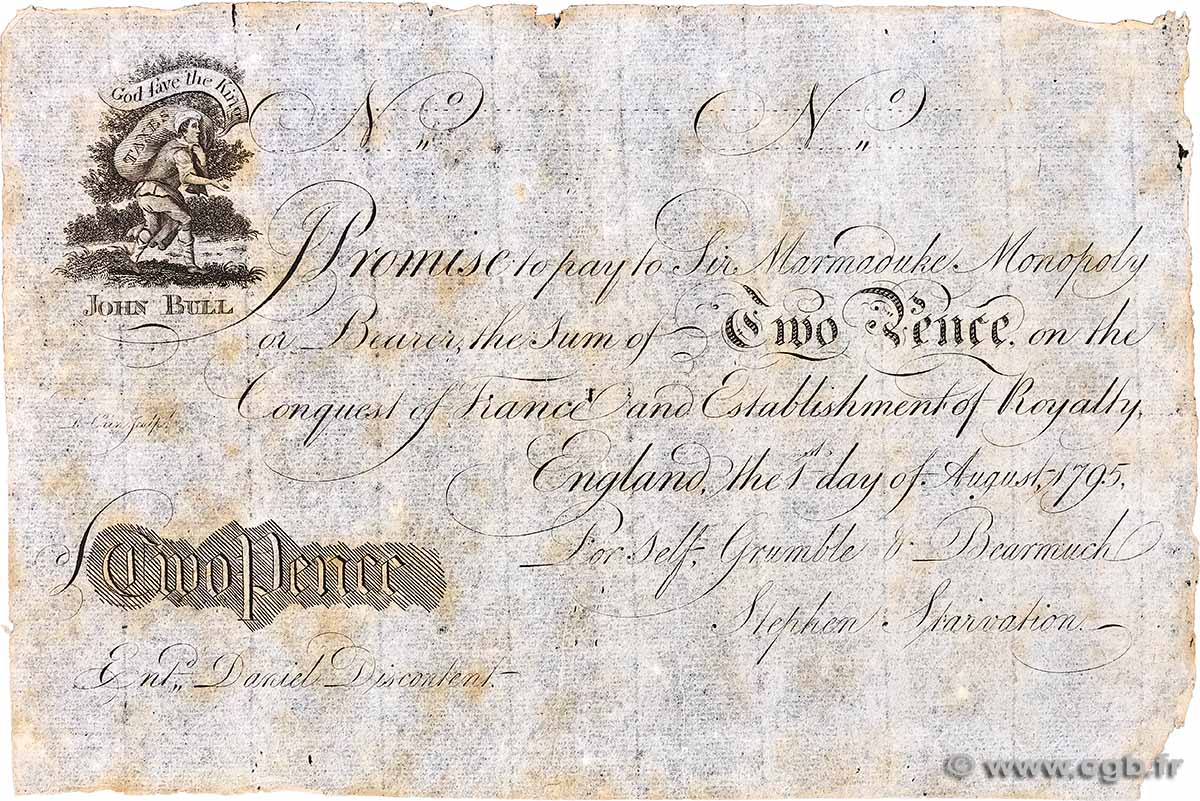 God save the King
TAXES
JOHN BULL
No No
I Promise to pay to Sir Marmaduke Monopoly
or Bearer, the Sum of Two Pence. on the
Conquest of France and Establishment of Royalty.
England, the 1st day of August, 1795.
For Self, Grumble & Bearmuch
Stephen Starvation.
Two Pence
Entd. Daniel Discontent.
© www.cgb.fr